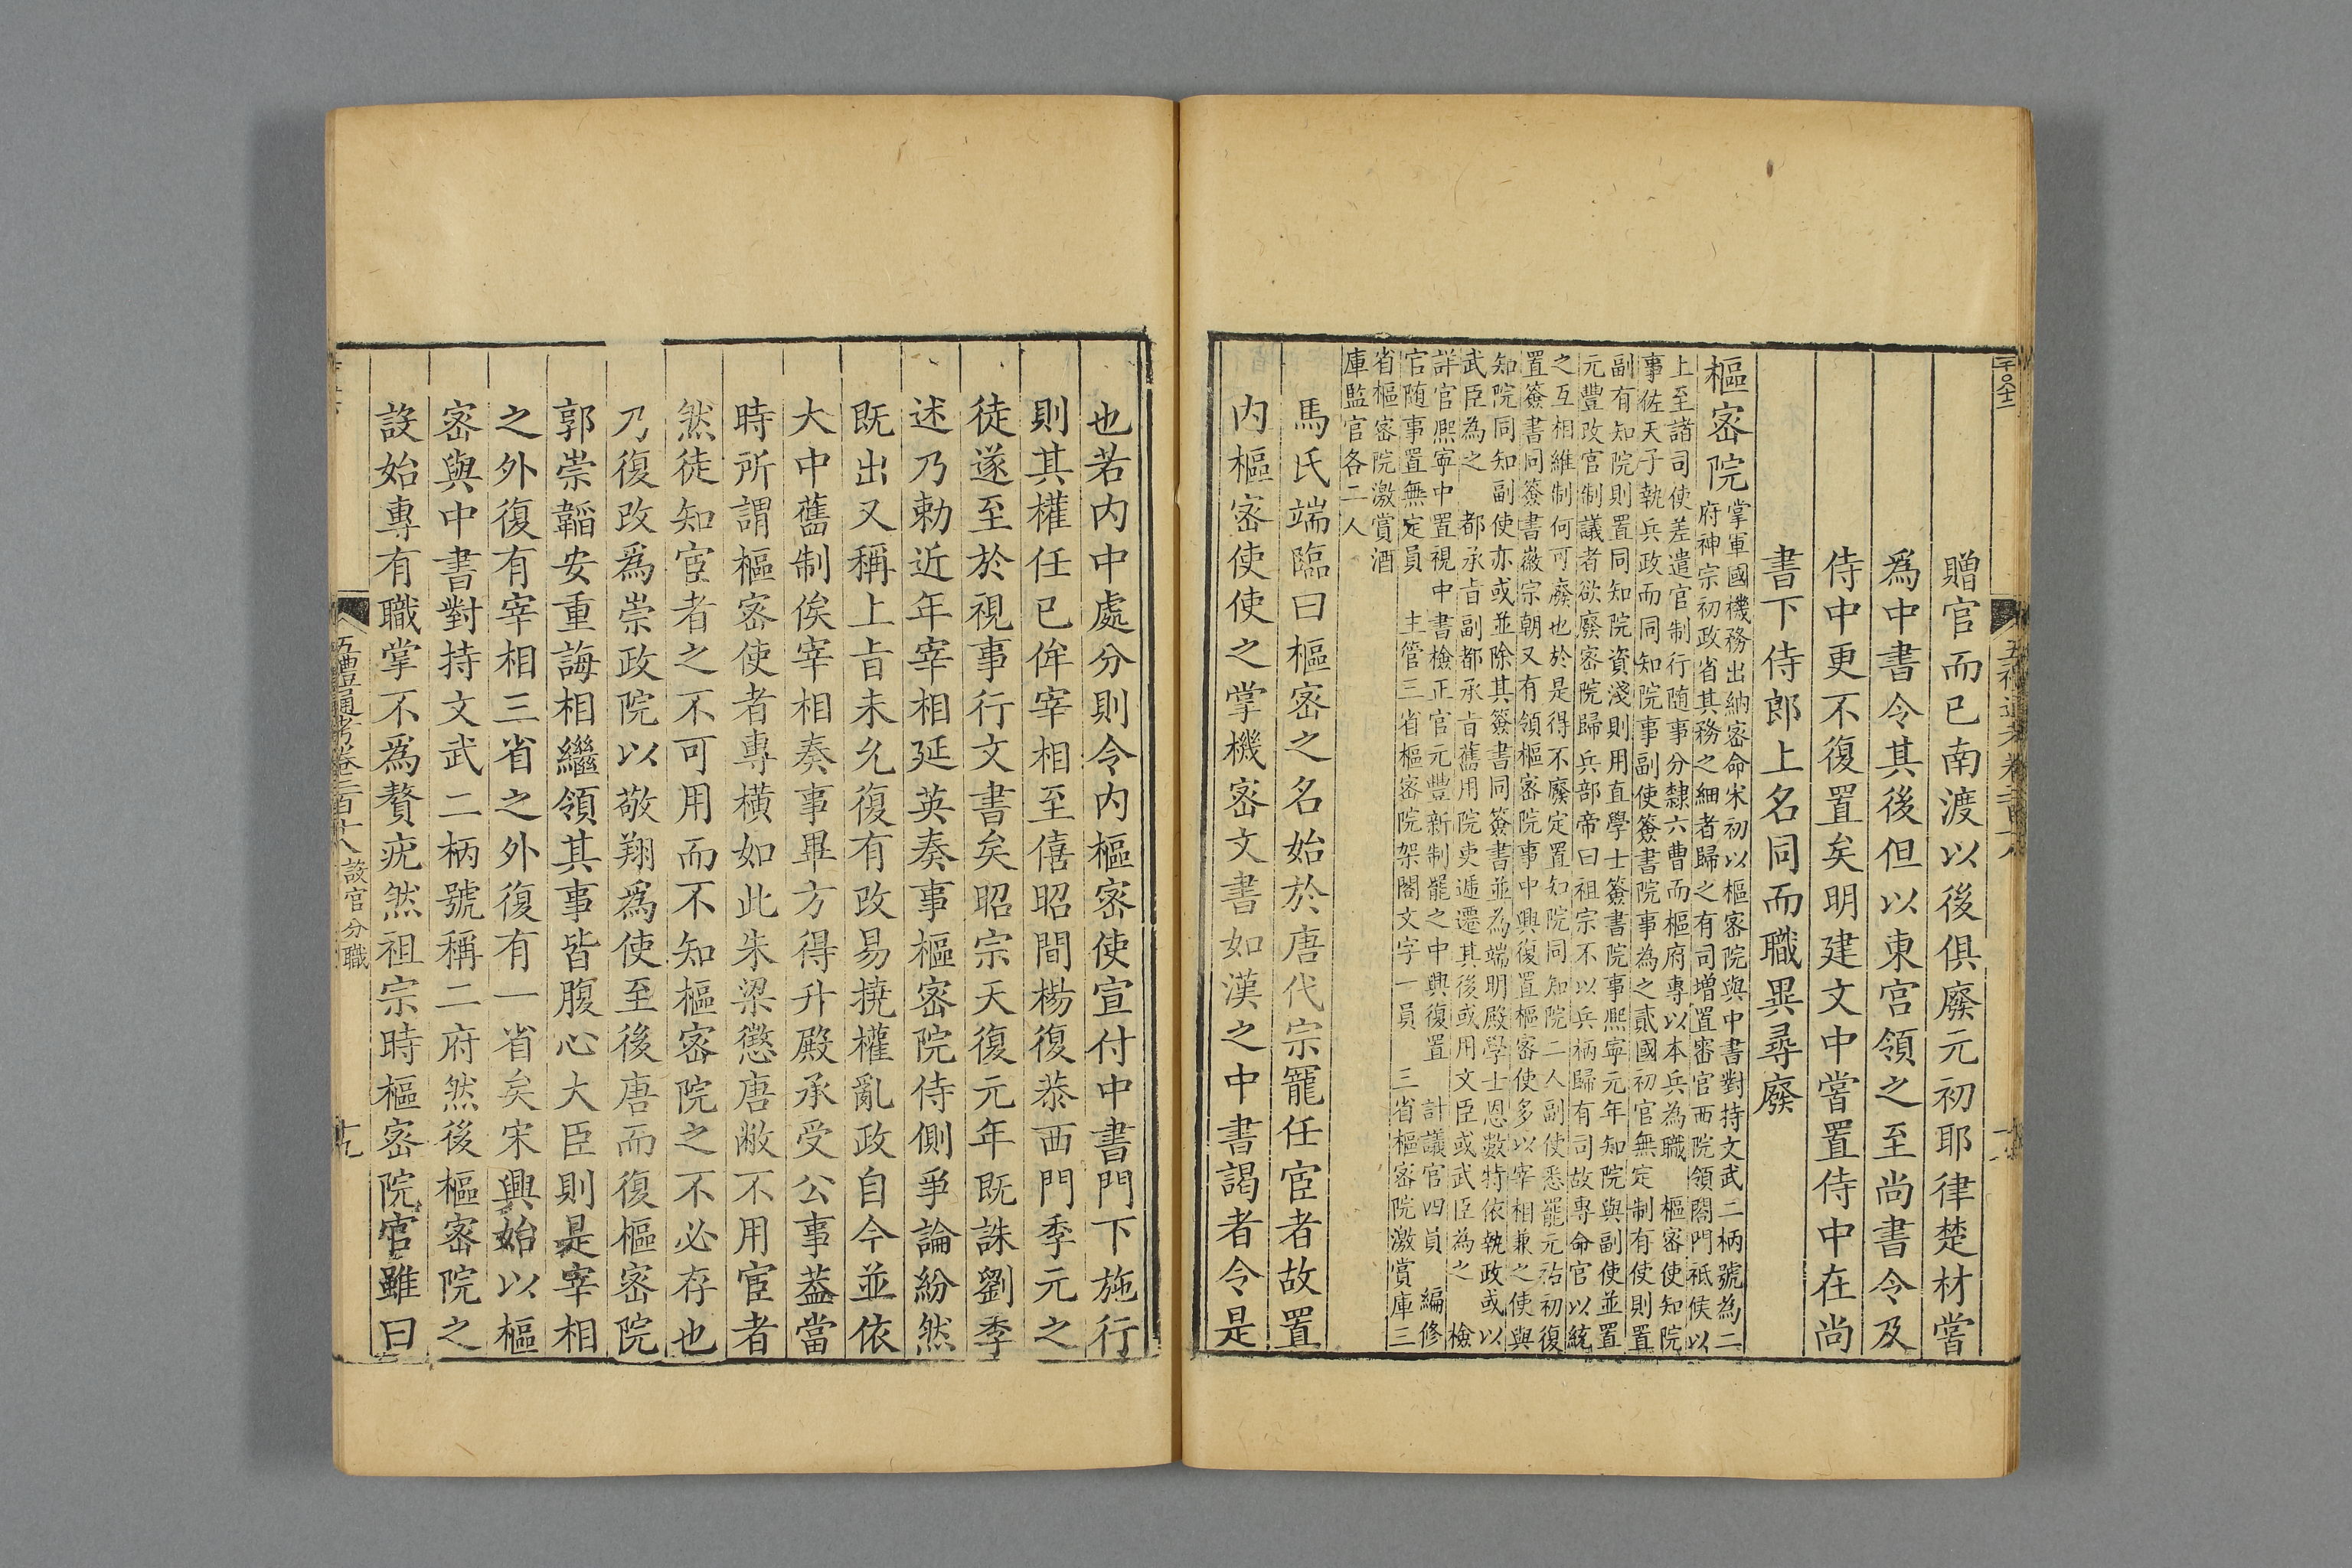 贈官而已南渡以後俱廢元初耶律楚材嘗
爲中書令其後但以東宮領之至尚書令及
侍中更不復置矣明建文中嘗置侍中在尚
書下侍郎上名同而職異尋廢
樞密院
掌軍國機務出納密命宋初以樞密院與中書對持文武二柄號為二
府神宗初政省其務之細者歸之有司增置審官西院領閤門祗候以
上至諸司使差遣官制行随事分隸六曹而樞府專以本兵為職　樞密使知院
事佐天子執兵政而同知院事副使簽書院事為之貳國初官無定制有使則置
副有知院則置同知院資淺則用直學士簽書院事熙寧元年知院與副使並置
元豐改官制議者欲廢密院歸兵部帝曰祖宗不以兵柄歸有司故專命官以統
之互相維制何可廢也於是得不廢定置知院同知院二人副使悉罷元祐初復
置簽書同簽書徽宗朝又有領樞密院事中興復置樞密使多以宰相兼之使與
知院同知副使亦或並除其簽書同簽書並為端明殿學士恩數特依執政或以
武臣為之　都承旨副都承旨舊用院吏遞遷其後或用文臣或武臣為之　檢
詳官熙寧中置視中書檢正官元豐新制罷之中興復置　計議官四員　編修
官随事置無定員　主管三省樞密院架閣文字一員　三省樞密院激賞庫三
省樞密院激賞酒
庫監官各二人
馬氏端臨曰樞密之名始於唐代宗寵任宦者故置
内樞密使使之掌機密文書如漢之中書謁者令是
也若内中處分則令内樞密使宣付中書門下施行
則其權任已侔宰相至僖昭間楊復恭西門季元之
徒遂至於視事行文書矣昭宗天復元年既誅劉季
述乃勅近年宰相延英奏事樞密院侍側爭論紛然
既出又稱上旨未允復有改易撓權亂政自今並依
大中舊制俟宰相奏事畢方得升殿承受公事蓋當
時所謂樞密使者專橫如此朱梁懲唐敝不用宦者
然徒知宦者之不可用而不知樞密院之不必存也
乃復改爲崇政院以敬翔爲使至後唐而復樞密院
郭崇韜安重誨相繼領其事皆腹心大臣則是宰相
之外復有宰相三省之外復有一省矣宋興始以樞
密與中書對持文武二柄號稱二府然後樞密院之
設始專有職掌不爲贅疣然祖宗時樞密院官雖曰
五禮通考卷二百十八　設官分職　十九